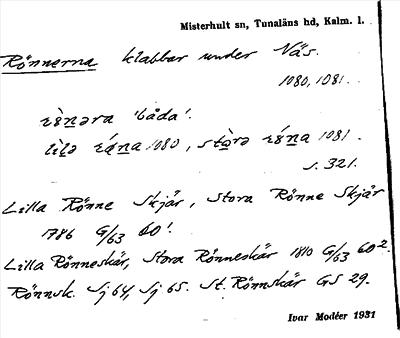 Misterhult sn, Tunaläns hd, Kalm. l.
Rönnerna klabbar under Näs.
1080, 1081.
'båda'.
1080, 1081.
s. 321.
Lilla Rönne Skjär, Stora Rönne Skjär
1786 G/63 60¹.
Lilla Rönneskär, Stora Rönneskär 1810 G/63 60².
Rönnsk. Sj 64, Sj 65. St. Rönnskär GS 29.
Ivar Modéer 1931